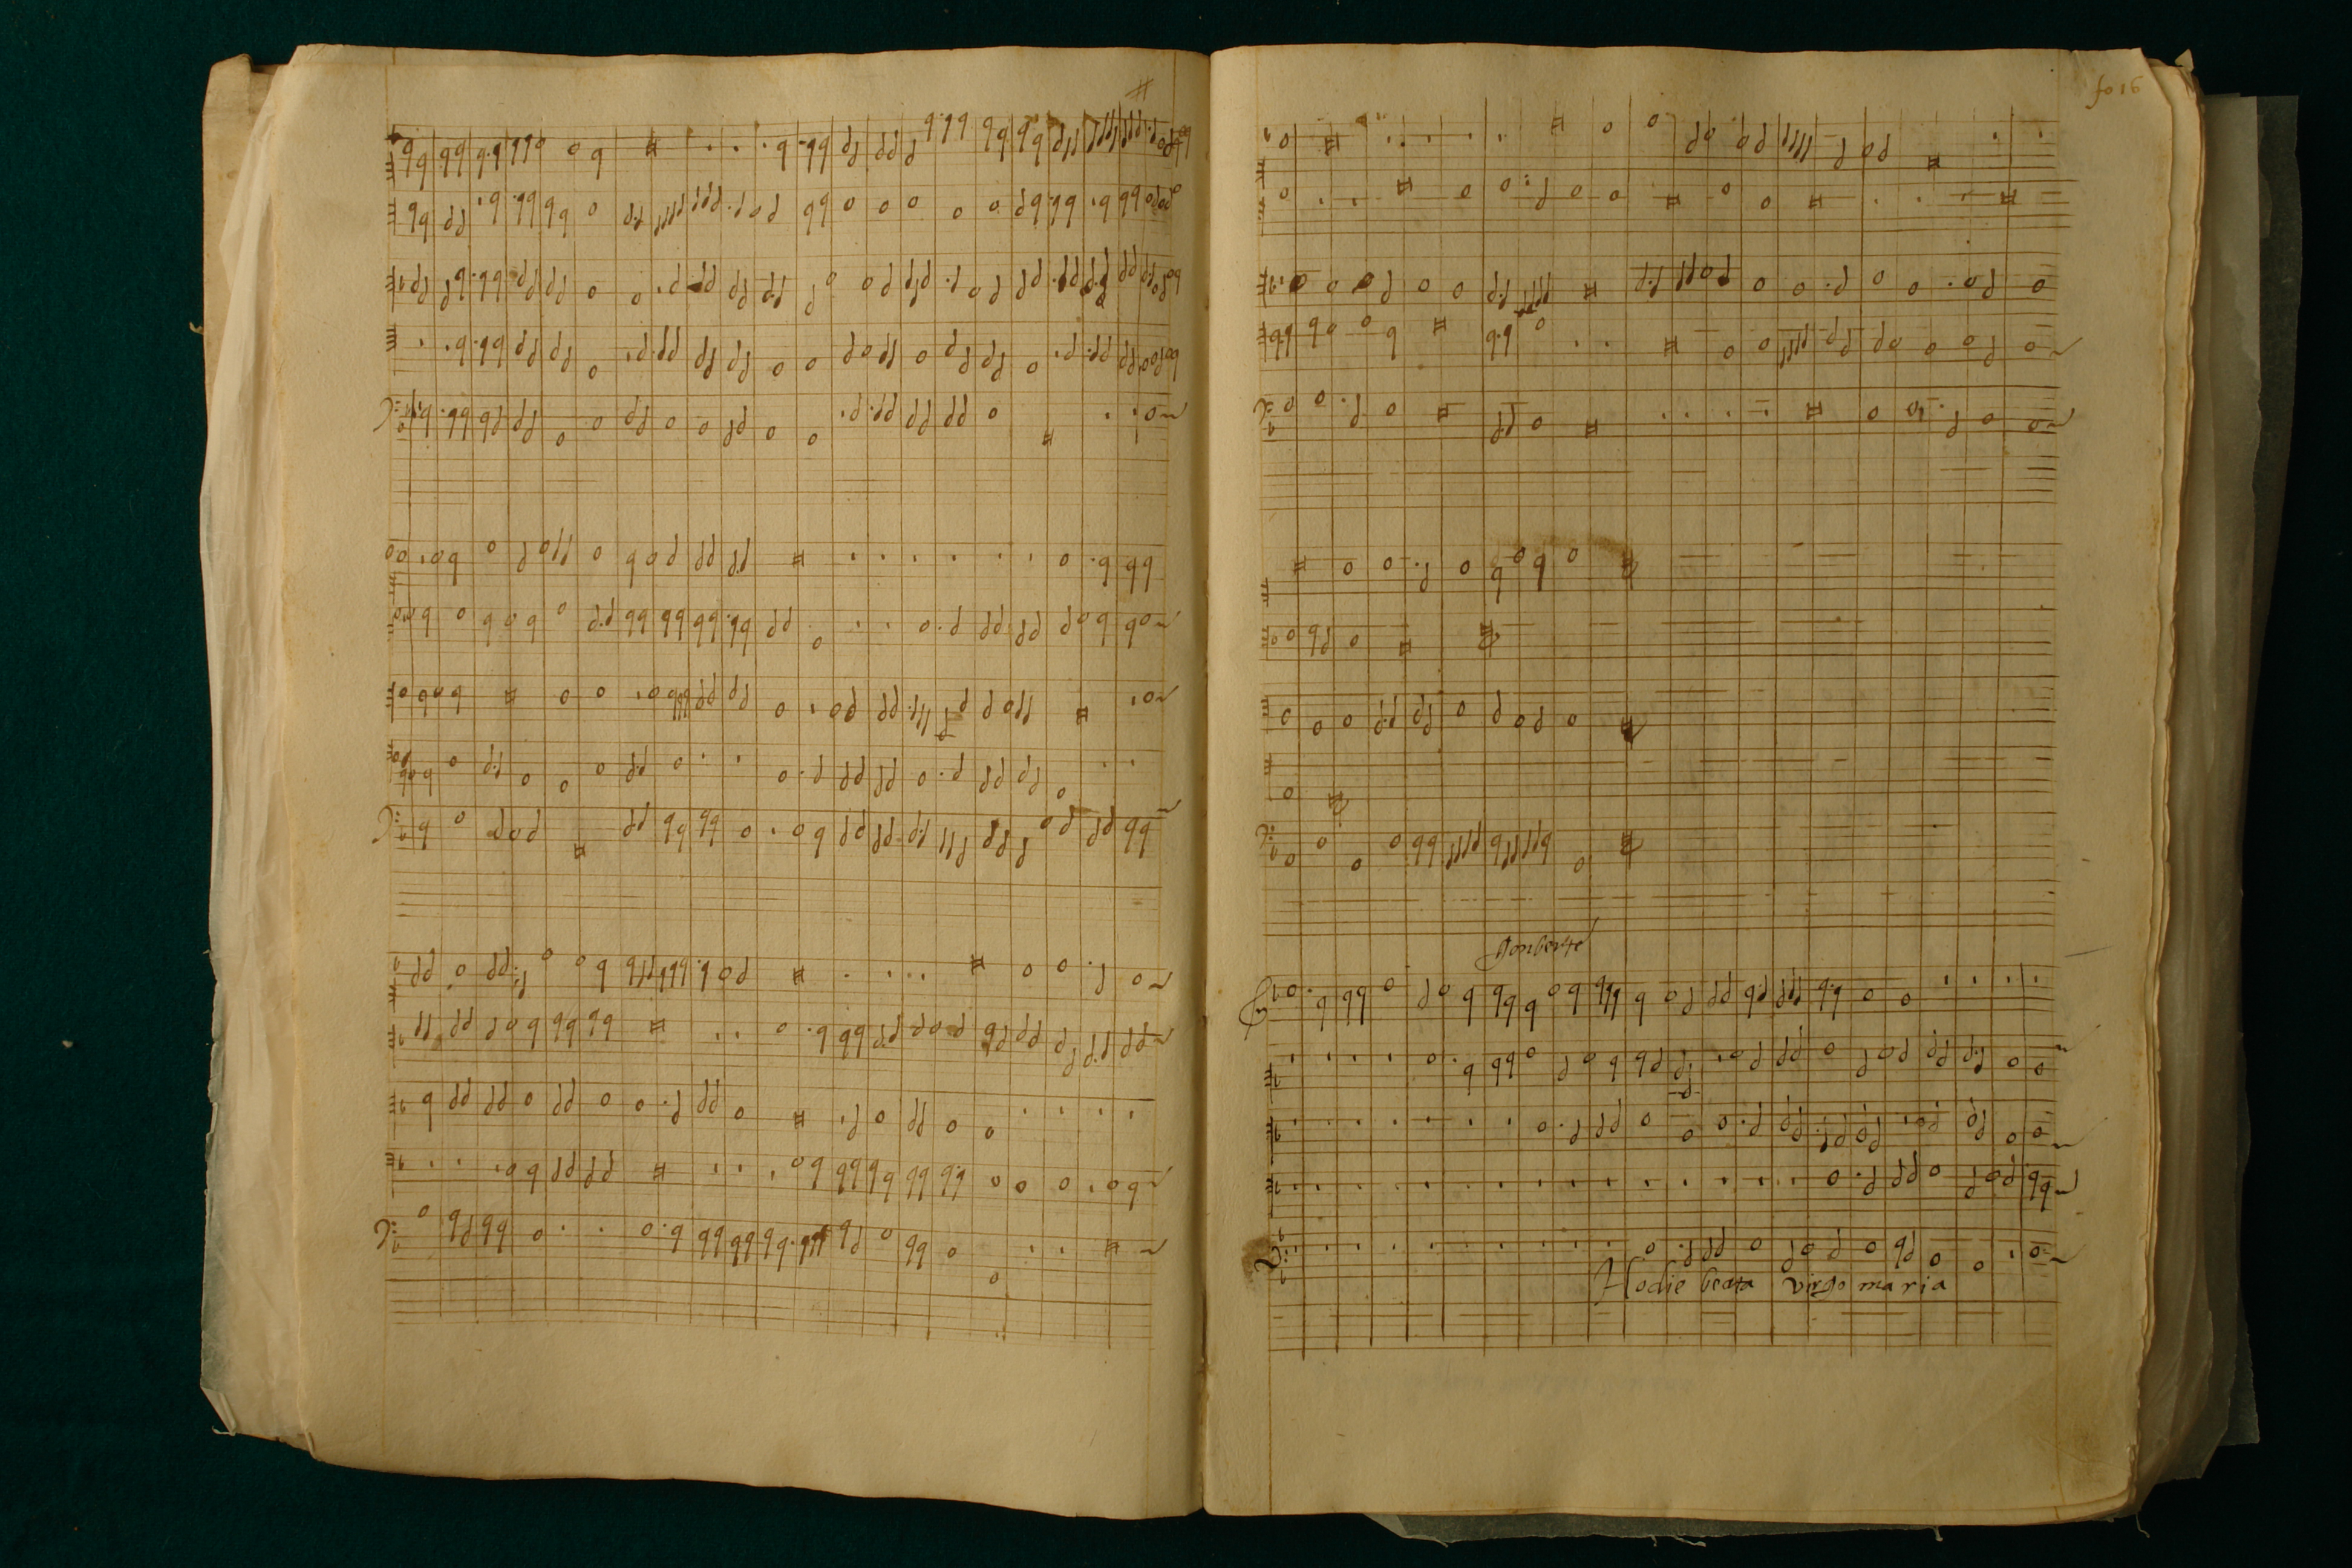 fo 16
Gonberte
Hodie beata virgo maria